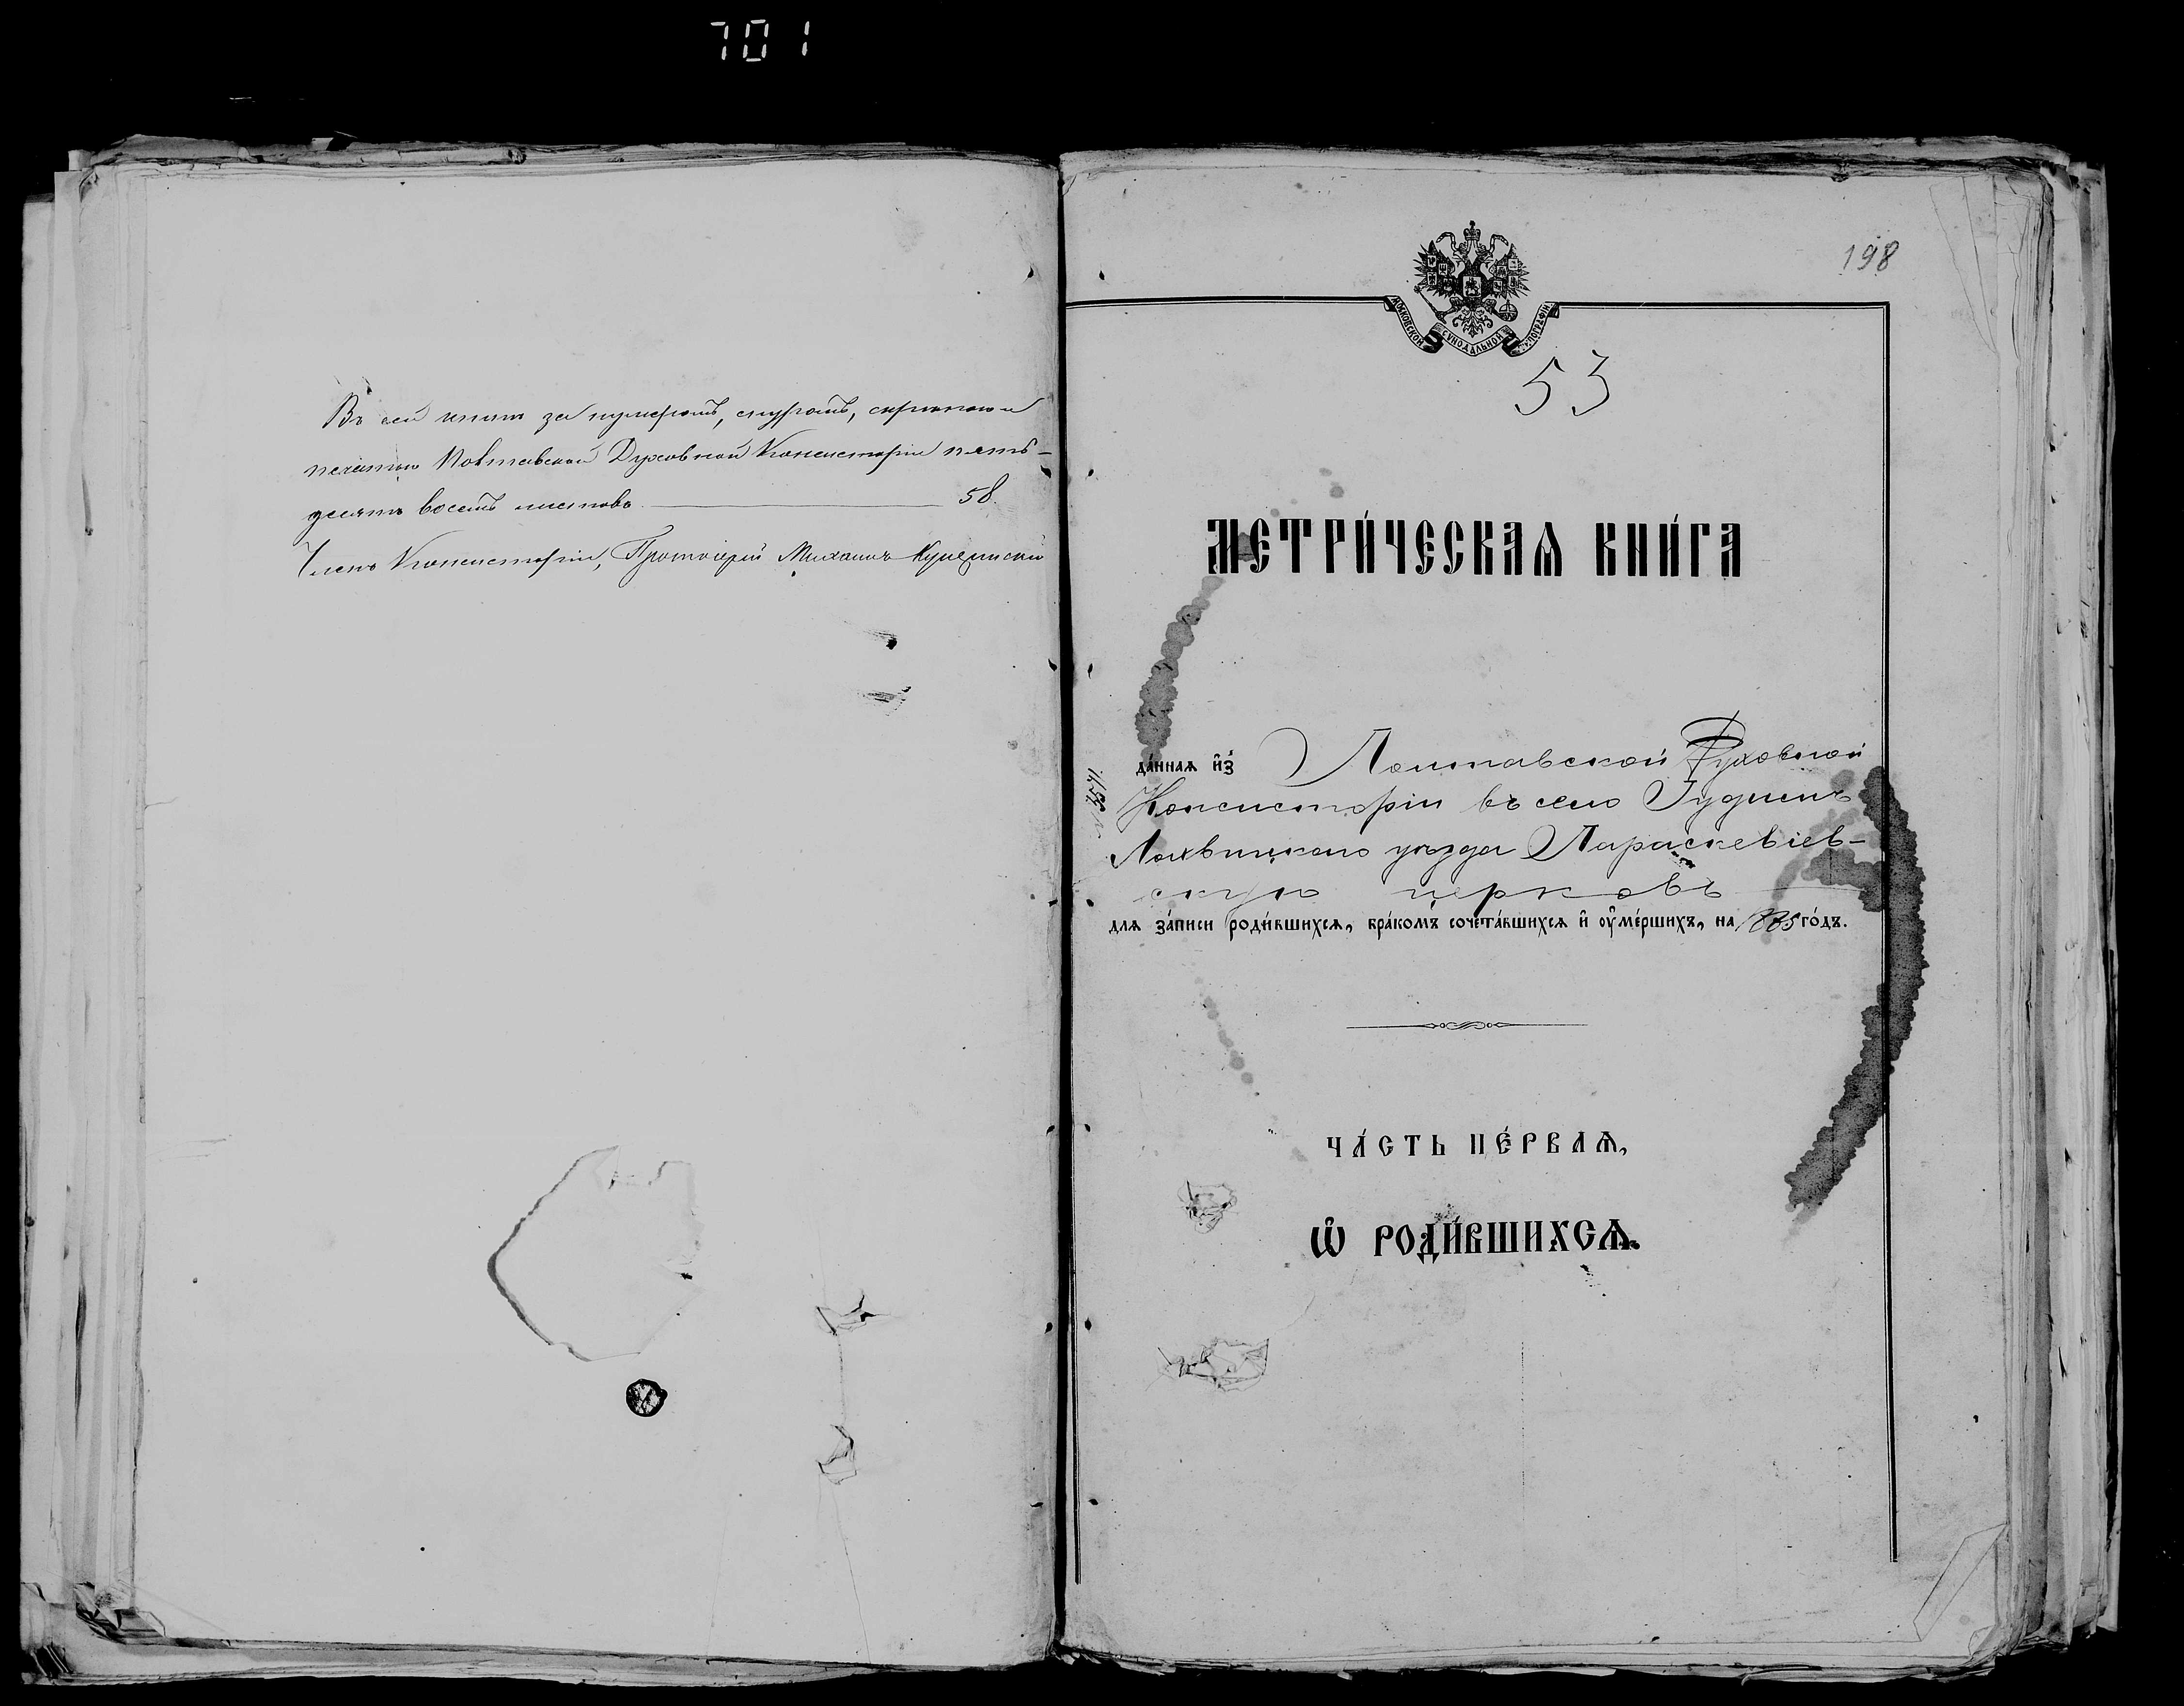 701
Въ сей книгѣ занумеровано, шнуромъ, скрѣпою и
печатью Полтавской Духовной Консисторіи пять-
десятъ восемь листовъ 58.
Членъ Консисторіи, Протоіерей Михаилъ
198
МОСКОВСКОЙ СѴНОДАЛЬНОЙ ТИПОГРАФІИ
53
МЕТРИ́ЧЕСКАѦ КНИ́ГА
да́ннаѧ и҆з̾ Полтавской Духовной
Консисторіи въ село Гудимъ
Лохвицкаго уѣзда Параскевіев-
скую церковь
длѧ за́писи роди́вшихсѧ, бра́комъ сочета́вшихсѧ и҆ ѹ҆ме́ршихъ, на 1885 го́дъ.
ЧА́СТЬ ПЕ́РВАѦ,
Ѡ҆ РОДИ́ВШИХСѦ.